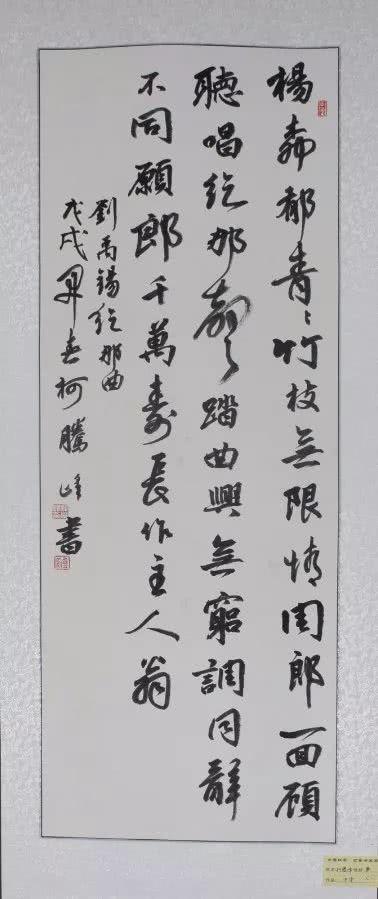 楊柳郁青〻竹枝無限情周郎一回顧
聽唱紇那聲踏曲興無窮調同辭
不同願郎千萬壽長作主人翁
劉禹錫紇那曲
戊戌早春柯騰峰書